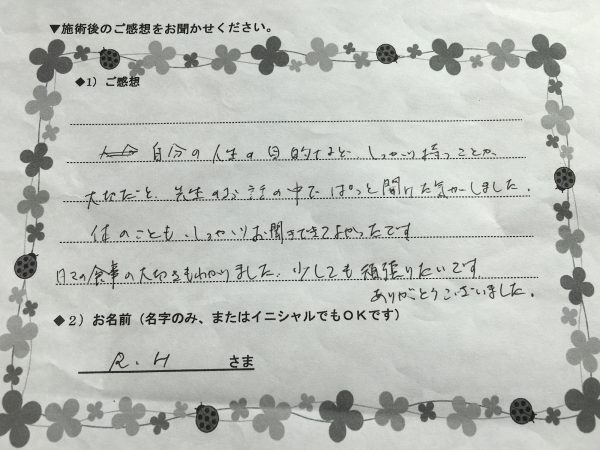 ▼施術後のご感想をお聞かせください。
◆1）ご感想
自分の人生の目的など、しっかり持つことが
大切だと、先生のお話の中で ぱっと開けた気がしました。
体のことも、しっかりお聞きできてよかったです
日々の食事の大切さもわかりました。少しでも頑張りたいです。
ありがとうございました。
◆2）お名前（名字のみ、またはイニシャルでもＯＫです）
R.H さま